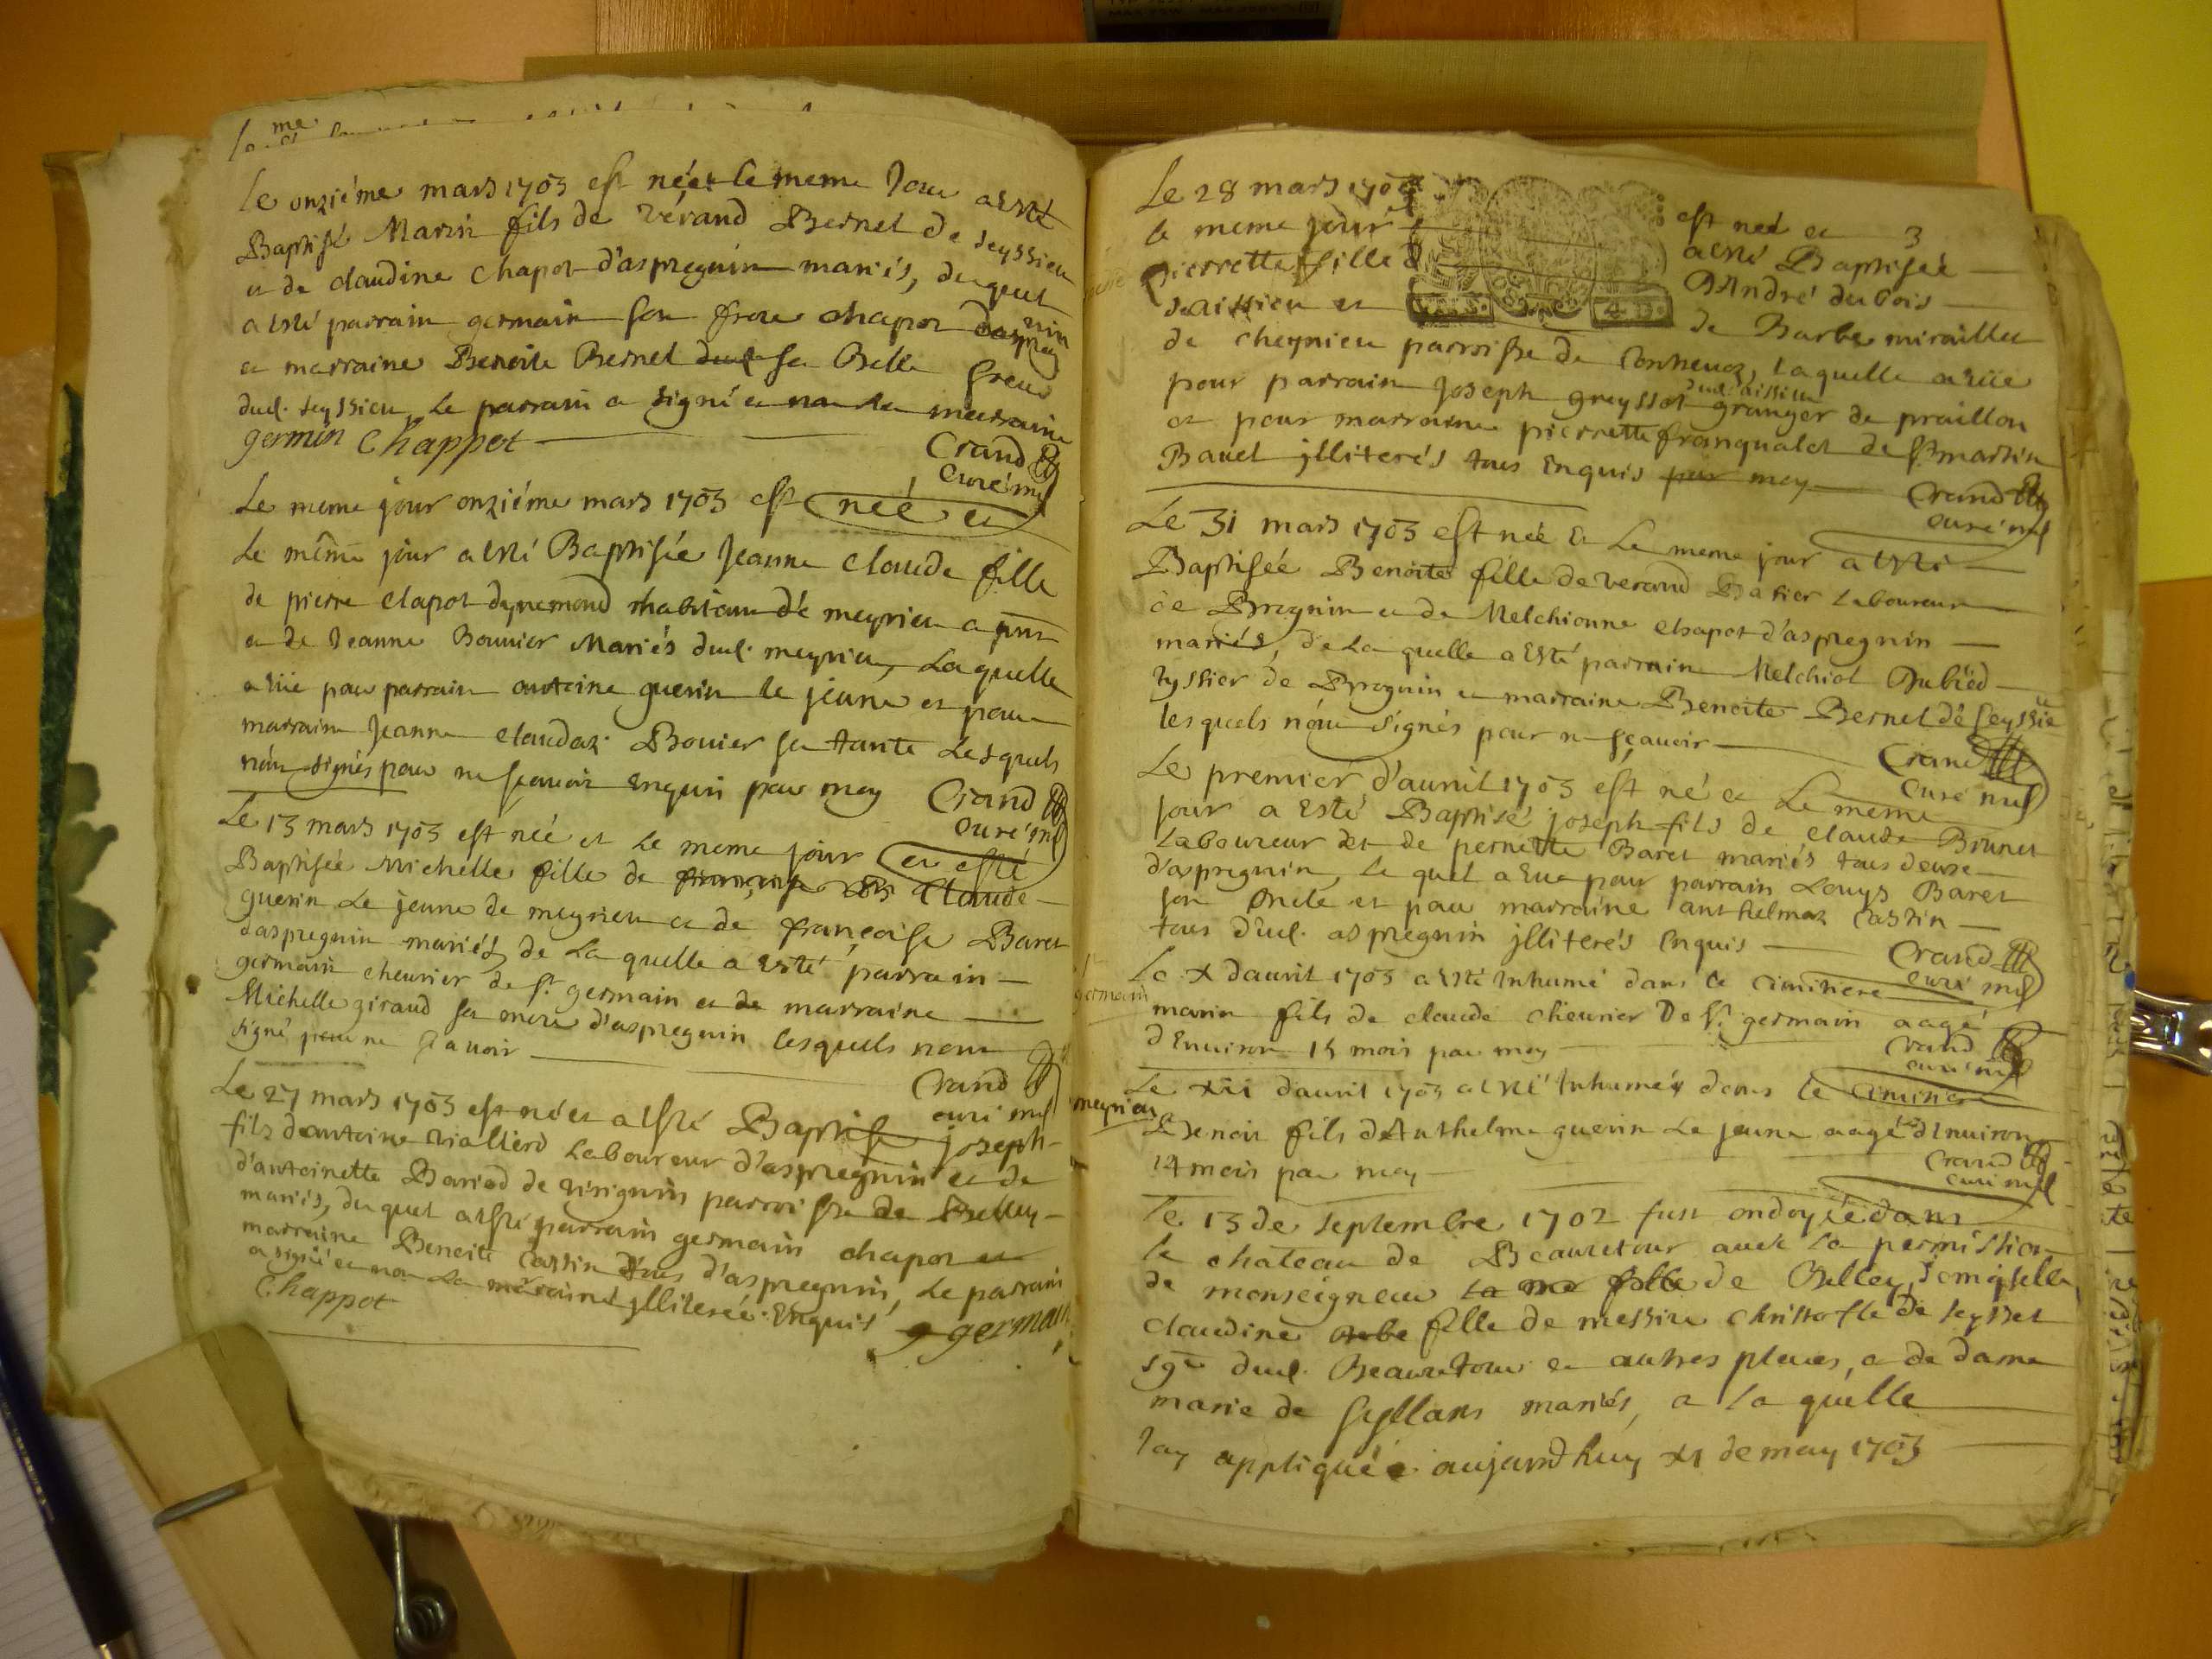 Le onziéme mars 1703 est née et le meme Jour a esté
Baptisé Marin fils de vérand Bernel de seyssieu
et de claudine chapot d'aspregnin mariés, duquel
a esté parrain germain son frere chapot
et marraine Benoite Bernel sa Belle soeur
dud. seyssieu, Le parrain a signé et non la marraine
germin Chappot
Crand
Curé
Le meme jour onziéme mars 1703 est née et
Le même jour a esté Baptisée Jeanne claude fille
de pierre clapot habitant de meyrieu
et de Jeanne Bouvier Mariés dud. meyrieu, Laquelle
a eüe pour parrain antoine guerin le jeune et pour
marraine Jeanne claudaz Bouier sa tante Lesquels
n'ont signés pour ne sçauoir Enquis par moy
Crand
Curé
Le 13 mars 1703 est née et Le meme jour a esté
Baptisée Michelle fille de Claude
guerin Le jeune de meyrieu et de françoise Baret
d'aspregnin mariés, de La quelle a esté parrain
germain cheurier de st germain et de marraine
Michelle giraud sa mere d'aspregnin lesquels n'ont
signé pour ne sçauoir
Crand
curé
Le 27 mars 1703 est né et a esté Baptisé joseph
fils d'antoine violliend Laboureur d'aspregnin et de
d'antoinette Bariod de virignin parroisse de Belley
mariés, duquel a esté parrain germain chapot et
marraine Benoite Castin tous d'aspregnin, Le parrain
a signé et non La marraine jlliterée Enquis
germain
Chappot
Le 28 mars 1703 est neé et
le meme jour a esté Baptisée
pierrette fille D'André dubois
d'aissieu et de Barbe miraillet
de cheynieu parroisse de Contreuoz, Laquelle a eüe
pour parrain Joseph greyssot granger de praillon
dud. aissieu
et pour marraine pierrette franqualet de st martin
Bauel jlliterés tous Enquis par moy
Crand
curé
Le 31 mars 1703 est née Et Le meme jour a esté
Baptisée Benoite fille de verand Batier Laboureur
de Brognin et de Melchionne chapot d'aspregnin
mariés, de La quelle a Esté parrain Melchiol Dubied
tyssier de Brognin et marraine Benoite Bernel de seyssieu
lesquels n'ont signés pour ne sçauoir
Crand
Curé
Le premier d'auril 1703 est né et Le meme
jour a Esté Baptisé joseph fils de claude Brunet
Laboureur et de pernette Baret mariés tous deux
d'aspregnin, Le quel a Eue pour parrain Louys Baret
son oncle et pour marraine anthelmaz Castin
tous dud. aspregnin jlliterés Enquis
Crand
curé
st germain
Le x dauril 1703 a esté Inhumé dans le cimitiere
marin fils de claude cheurier De st germain aagé
d'Enuiron 15 mois par moy
Crand
curé
meyrieu
Le xii dauril 1703 a esté Inhumé dans le cimitiere
Benoit fils d'Anthelme guerin Le jeune aagé d'Enuiron
14 mois par moy
Crand
curé
Le 13 de septembre 1702 fust ondoyée dans
le château de Beauretour auec la permission
de monseigneur de Belley, Demoyselle
claudine fille de messire christofle de seyssel
sgr dud. Beauretour et autres places, et de dame
marie de seyllans mariés, a la quelle
Jay appliqué aujourdhuy xi de may 1703